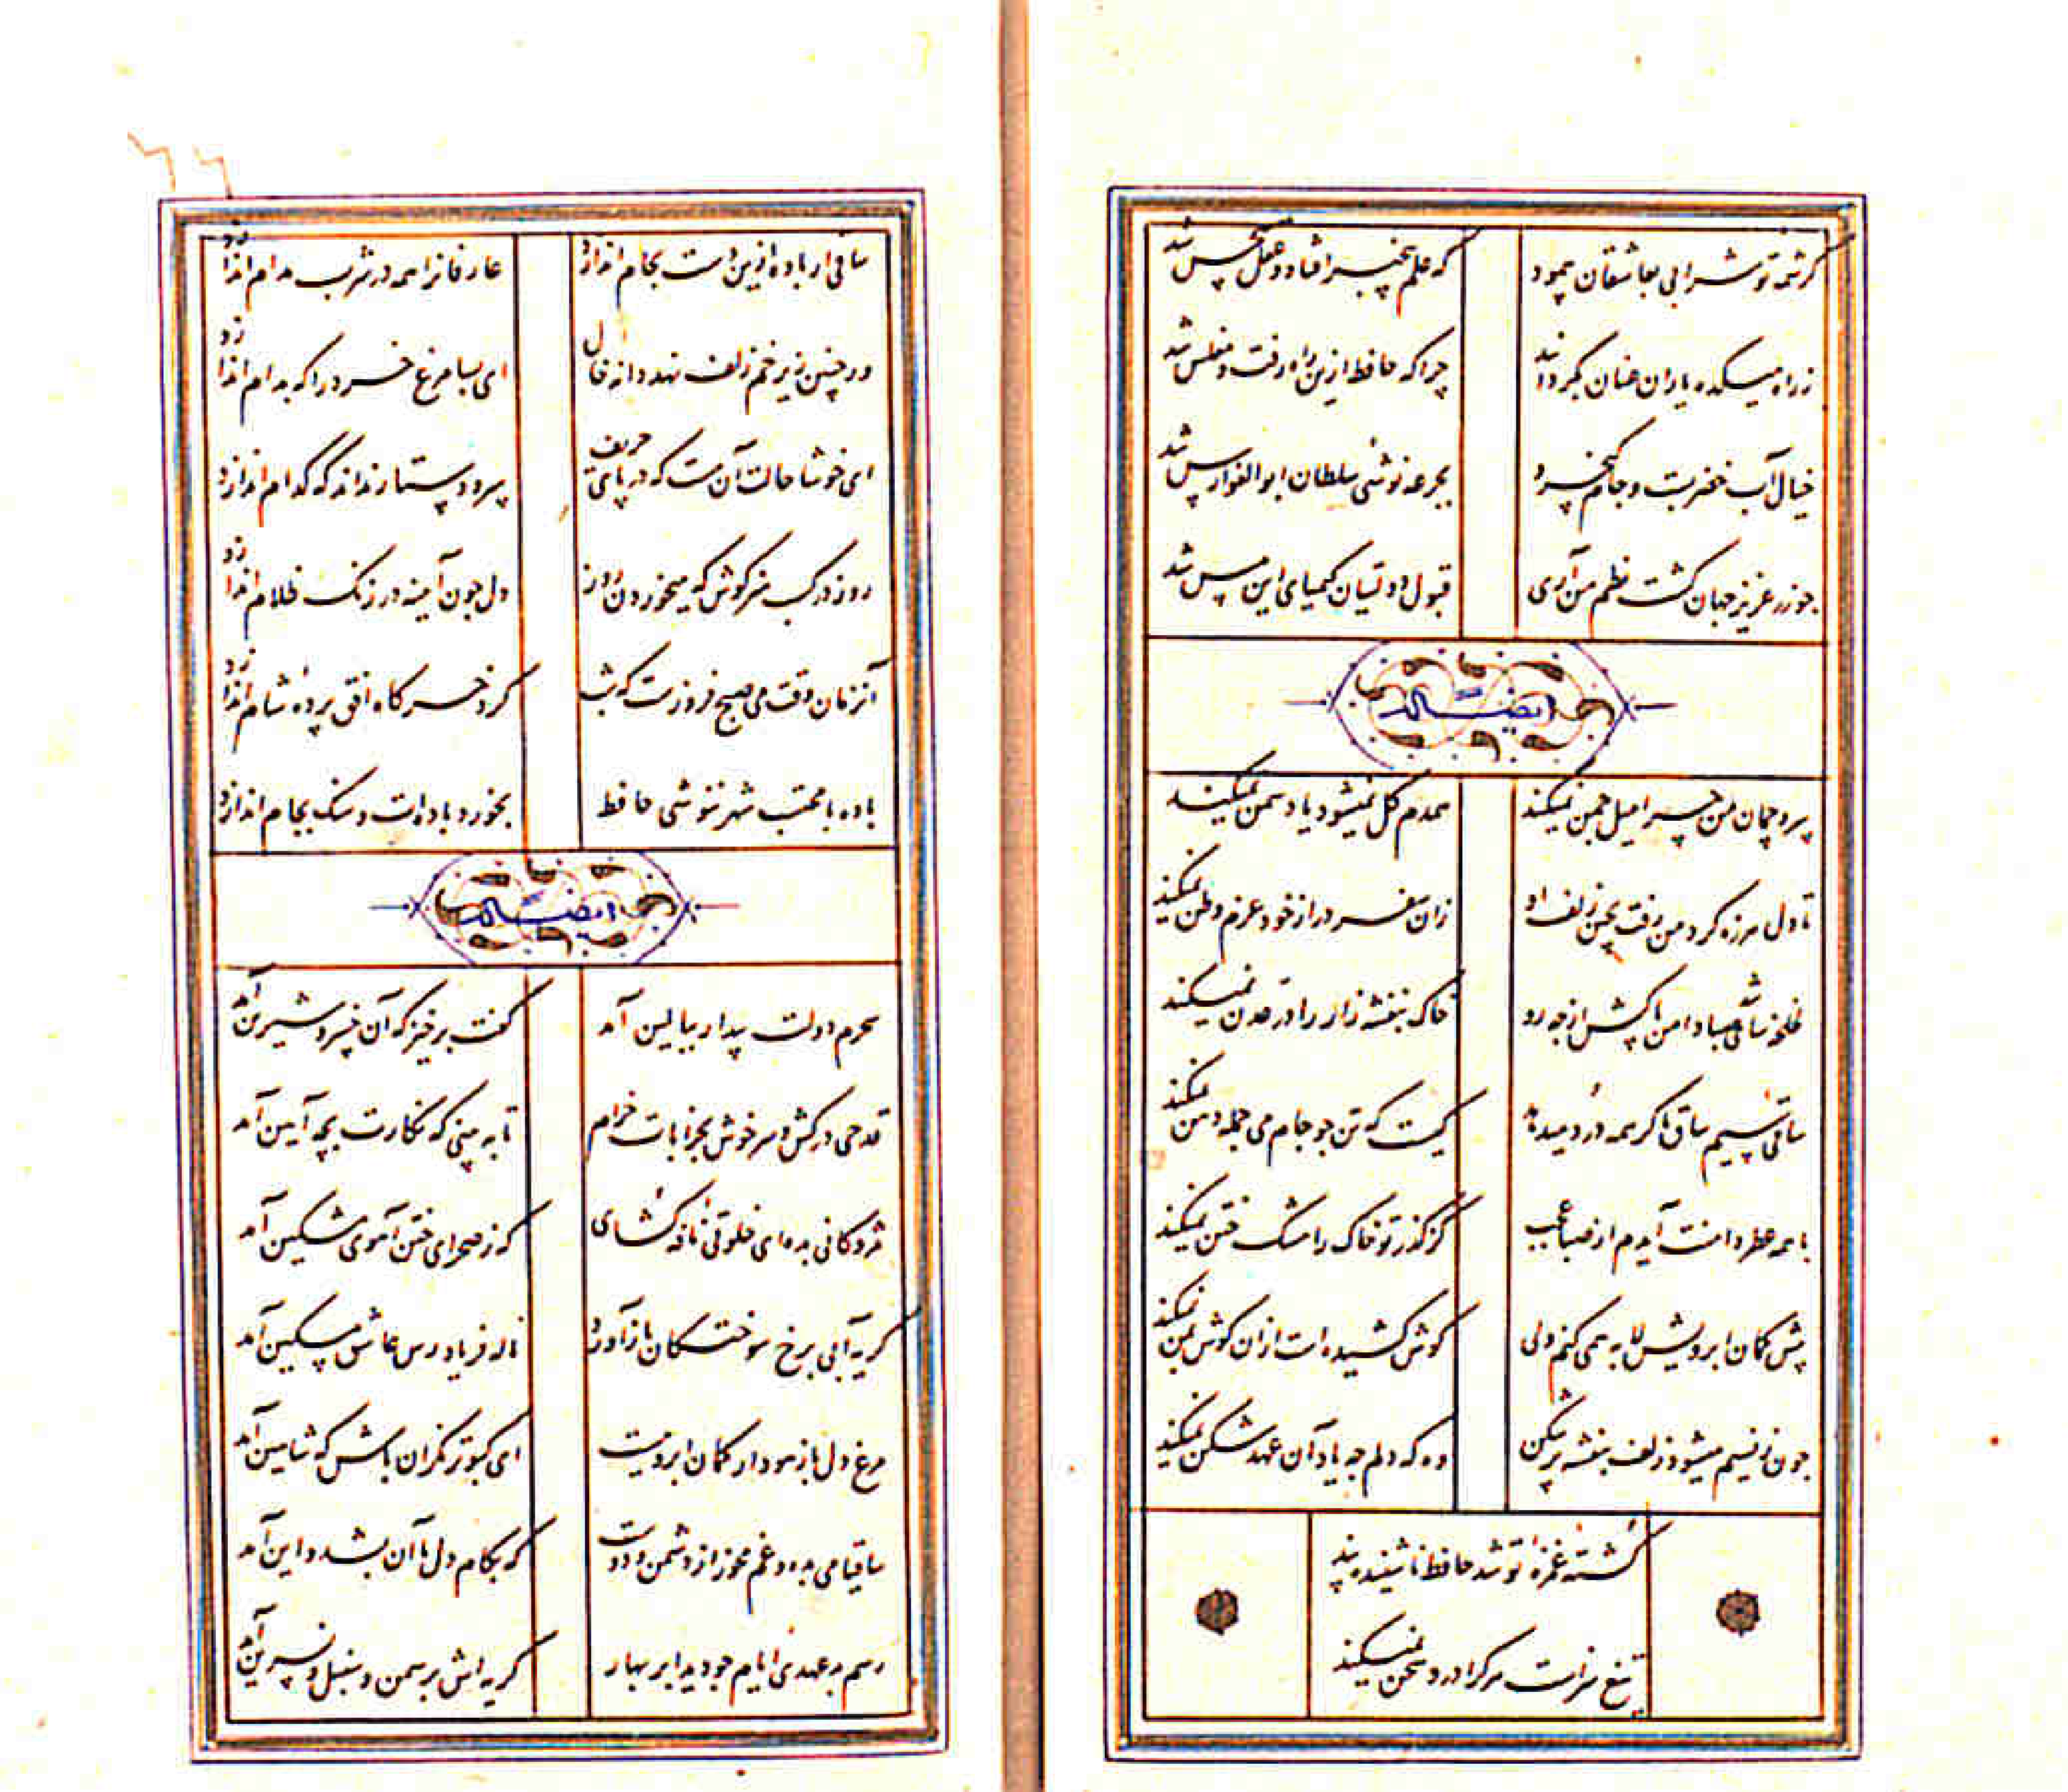 کرشمه تو شرابی بعاشقان پیمود
که علم بیخبر افتاد و عقل بیحس شد
زراه میکده یاران عنان بگردانید
چرا که حافظ ازین راه رفت و مفلس شد
خیال آب خضر بست و جام کیخسرو
بجرعه نوشی سلطان ابوالفوارس شد
چو زر عزیز جهان گشت نظم من آری
قبول دولتیان کیمیای این مس شد
ایضاً له
سرو چمان من چرا میل چمن نمیکند
همدم گل نمیشود یاد سمن نمیکند
تا دل هرزه گرد من رفت بچین زلف او
زان سفر دراز خود عزم وطن نمیکند
شد دامن پاکش از چه رو
خاک بنفشه زار را در عدن نمیکند
ساقی سیم ساق ما گر همه درد میدهد
کیست که تن چو جام می جمله دهن نمیکند
با همه عطر دامنت آیدم از صبا عجب
کز گذر تو خاک را مشک ختن نمیکند
پیش کمان ابرویش لابه همی کنم ولی
گوش کشیده است ازان گوش بمن نمیکند
چون ز نسیم میشود زلف بنفشه پر شکن
وه که دلم چه یاد آن عهد شکن نمیکند
کشته غمزه تو شد حافظ ناشنیده پند
تیغ سزاست هر کرا درد سخن نمیکند
ساقی ار باده ازین دست بجام اندازد
عارفانرا همه در شرب مدام اندازد
ور چنین زیر خم زلف نهد دانه خال
ای بسا مرغ خرد را که بدام اندازد
ای خوشا حالت آن مست که در پای حریف
سر و دستار نداند که کدام اندازد
روز در کسب هنر کوش که می خوردن روز
دل چون آینه در زنگ ظلام اندازد
آنزمان وقت می صبح فروزست که شب
گرد خرگاه افق پرده شام اندازد
باده با محتسب شهر ننوشی حافظ
بخورد باده ات و سنگ بجام اندازد
ایضاً له
سحرم دولت بیدار ببالین آمد
گفت برخیز که آن خسرو شیرین آمد
قدحی درکش و سرخوش بخرابات خرام
تا به بینی که نگارت بچه آیین آمد
مژدگانی بده ای خلوتی نافه گشای
که ز صحرای ختن آهوی مشکین آمد
گریه آبی برخ سوختگان باز آورد
ناله فریاد رس عاشق مسکین آمد
مرغ دل باز هوادار کمان ابروئیست
ای کبوتر نگران باش که شاهین آمد
ساقیا می بده و غم مخور از دشمن و دوست
که بکام دل ما آن بشد و این آمد
رسم بد عهدی ایام چو دید ابر بهار
گریه اش بر سمن و سنبل و نسرین آمد